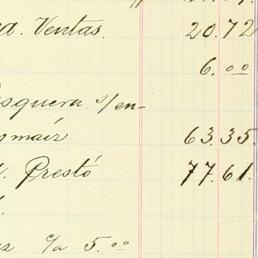 a. Ventas. 20.72
6.00
squera s/en-
maíz 63.35.
Prestó 77.61.
c/a 5.00